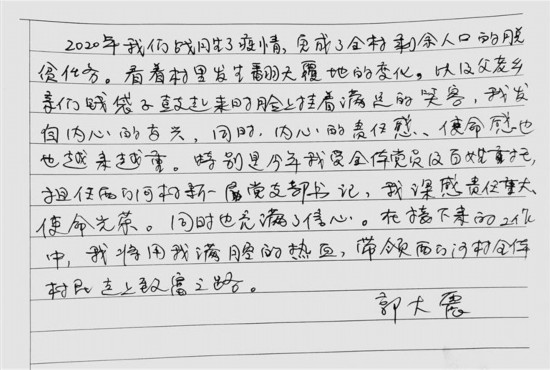 2020年我们战胜了疫情,完成了全村剩余人口的脱
贫任务。看着村里发生翻天覆地的变化。以及父老乡
亲们钱袋子鼓起来时脸上挂着满足的笑容,我发
自内心的高兴,同时,内心的责任感、使命感也
也越来越重。特别是今年我受全体党员及百姓重托,
担任西河村新一届党支部书记,我深感责任重大,
使命光荣。同时也充满了信心。在接下来的工作
中,我将用我满腔的热血,带领西河村全体
村民走上致富之路。
郭大震